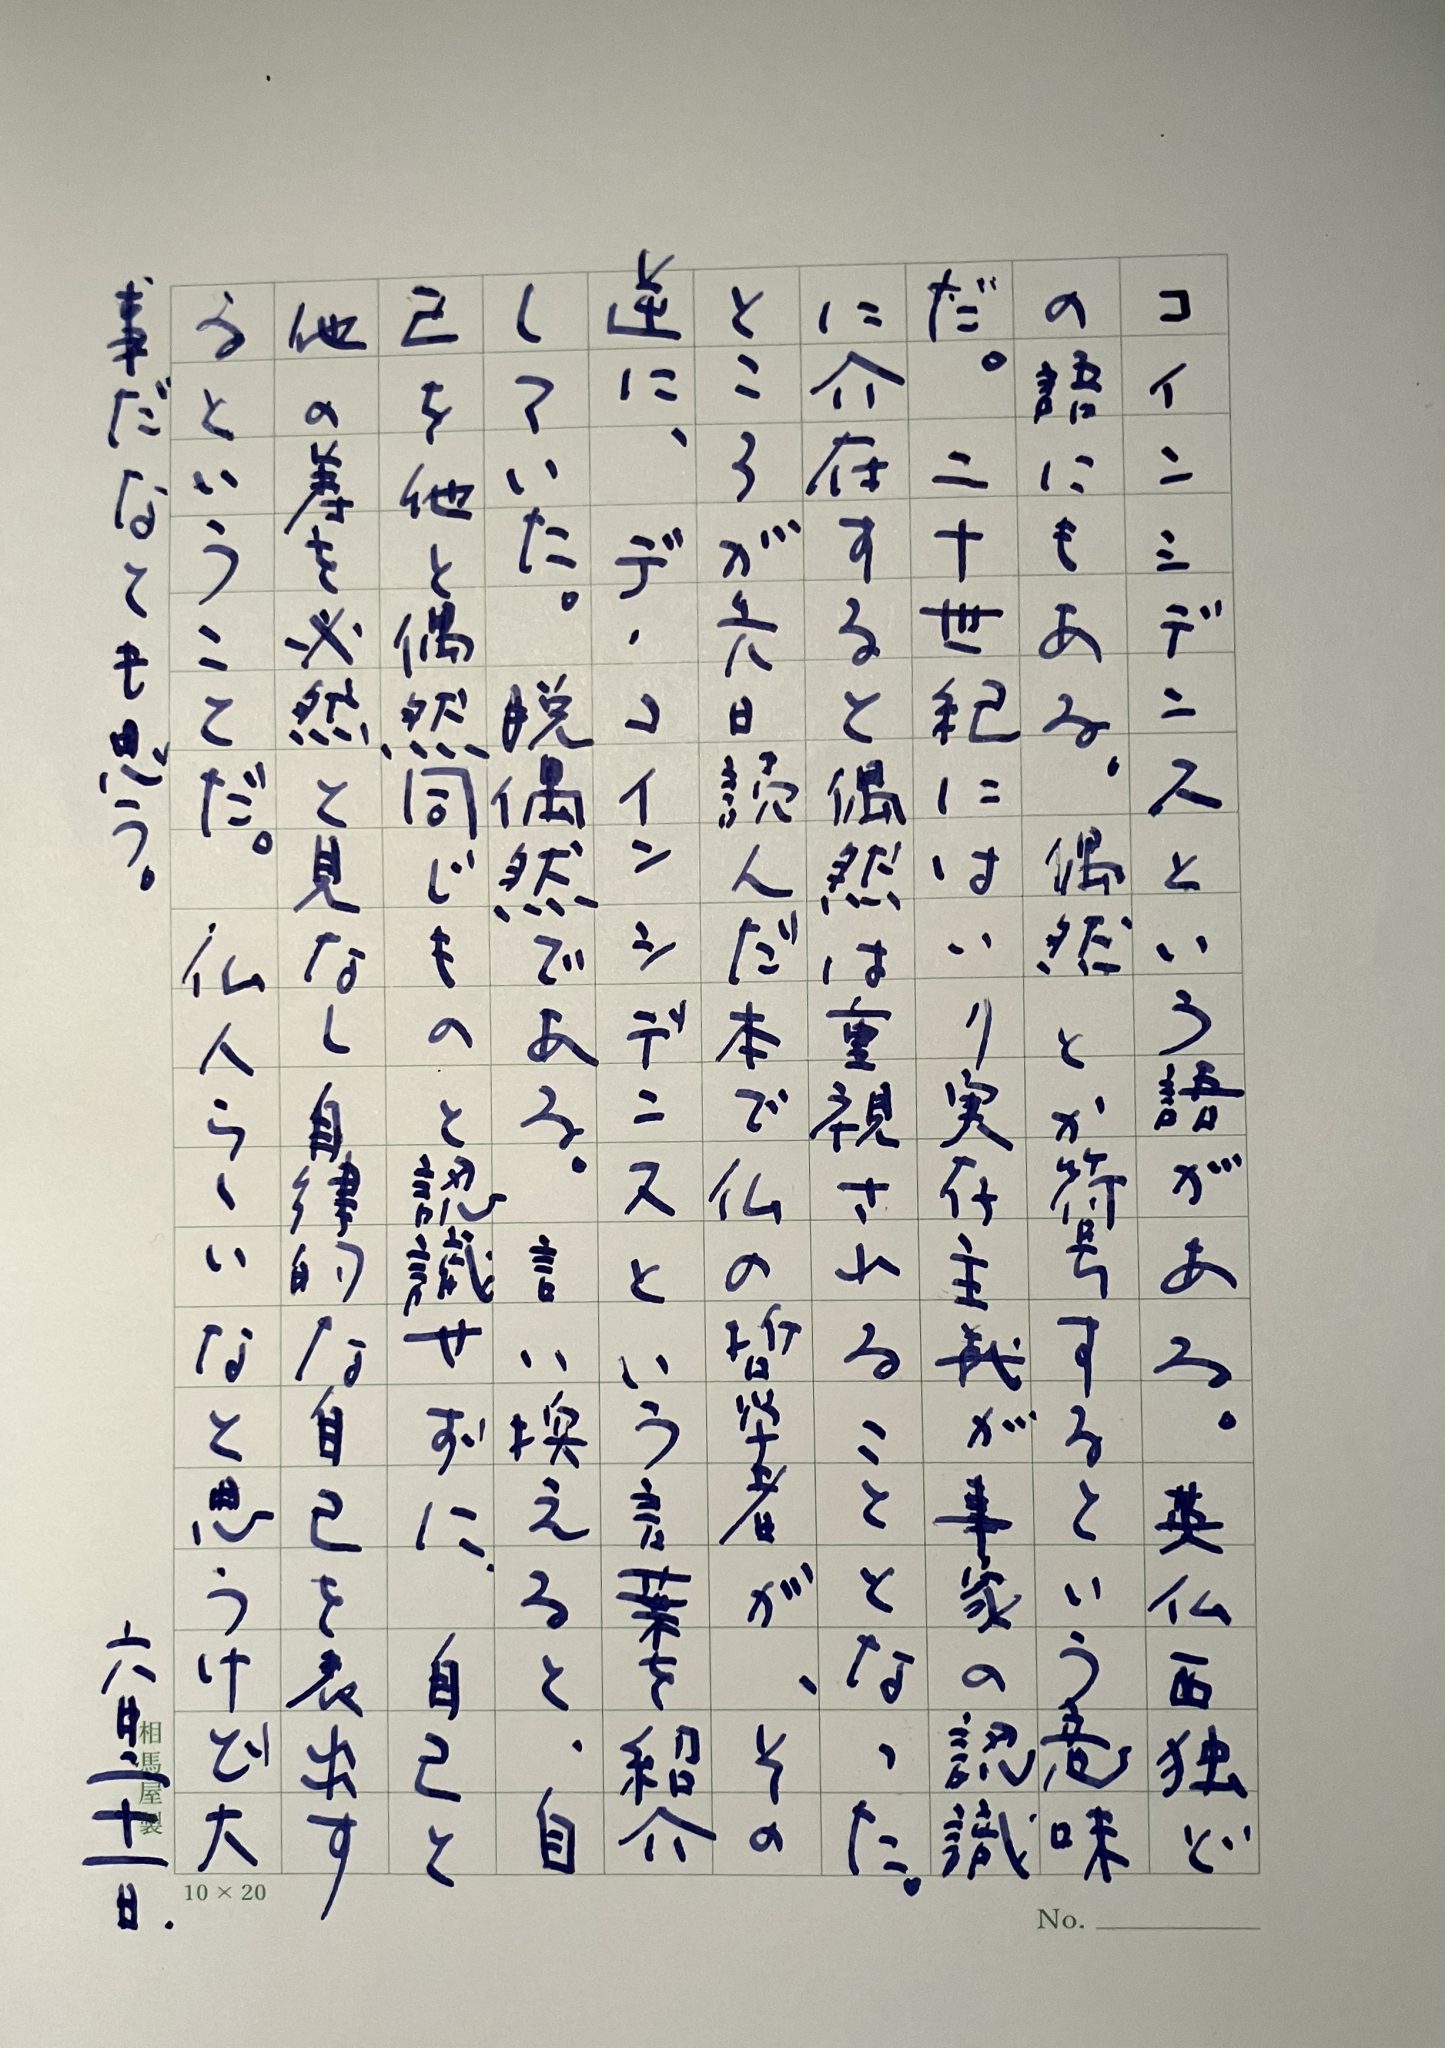 コインシデンスという語がある。英仏西独ど
の語にもある。偶然とか符号するという意味
だ。二十世紀にはいり実存主義が事家の認識
に介在すると偶然は重視されることとなった。
ところが六日読んだ本で仏の哲学者が、その
逆に、デ・コインシデンスという言葉を紹介
していた。脱偶然でである。言い換えると、自
己を他と偶然同じものと認識せずに、自己と
他の差を必然と見なし自律的な自己を表出す
るということだ。仏人らしいなと思うけど大
事だなとも思う。
六月二十一日.
相馬屋製
10×20
No.